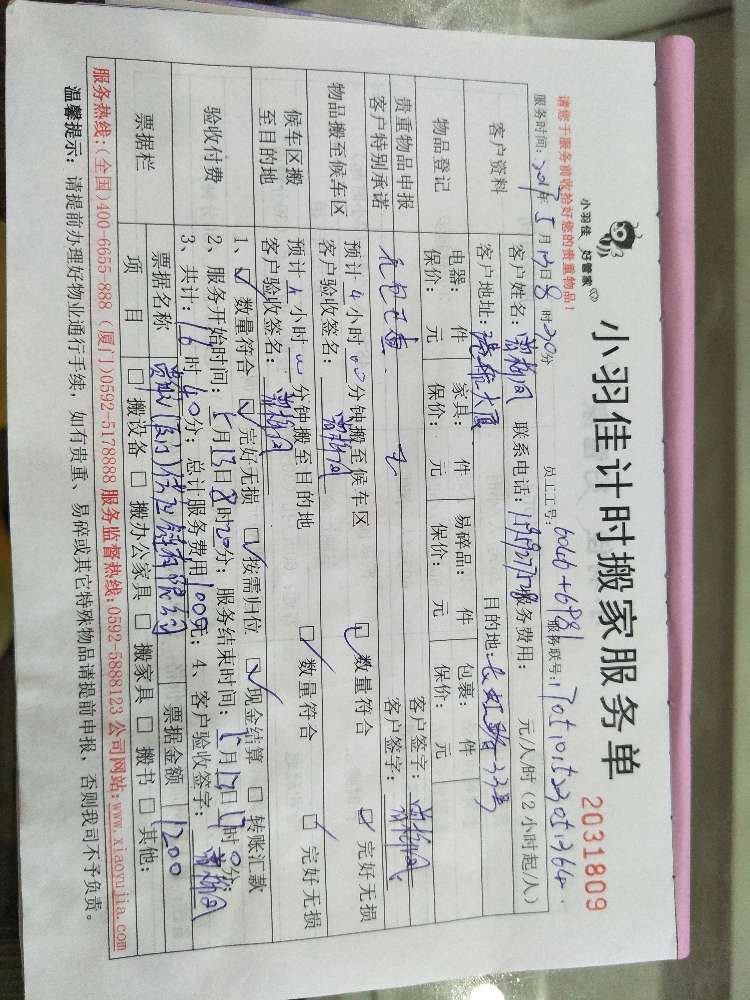 小羽佳 好管家
小羽佳计时搬家服务单
2031809
请您于服务前收拾好您的贵重物品！
服务时间：年5月13日8时20分 员工工号：6046+6981 服务联号：
客户资料
客户姓名： 联系电话： 服务费用： 元/人/时（2小时起/人）
客户地址：港航大厦 目的地：长虹路33号
物品登记
电器： 件 家具： 件 易碎品： 件 包裹： 件
保价： 元 保价： 元 保价： 元 保价： 元
贵重物品申报 客户签字：
客户特别承诺 无 客户签字：
物品搬至候车区
预计4小时00分钟搬至候车区 数量符合 完好无损
客户验收签名：
候车区搬
至目的地
预计 小时 分钟搬至目的地 数量符合 完好无损
客户验收签名：
验收付费
1、数量符合 完好无损 按需归位 现金结算 转账汇款
2、服务开始时间：5月13日8时20分；服务结束时间：5月13日 时0分；
3、共计：16时40分；总计服务费用1000元；4、客户验收签字：
票据栏
票据名称 票据金额 1200
项目 搬设备 搬办公家具 搬家具 搬书 其他：
服务热线：(全国)400-6655-888 (厦门)0592-5178888 服务监督热线：0592-5888123 公司网站：www.xiaoyujia.com
温馨提示：请提前办理好物业通行手续，如有贵重、易碎或其它特殊物品请提前申报，否则我司不予负责。